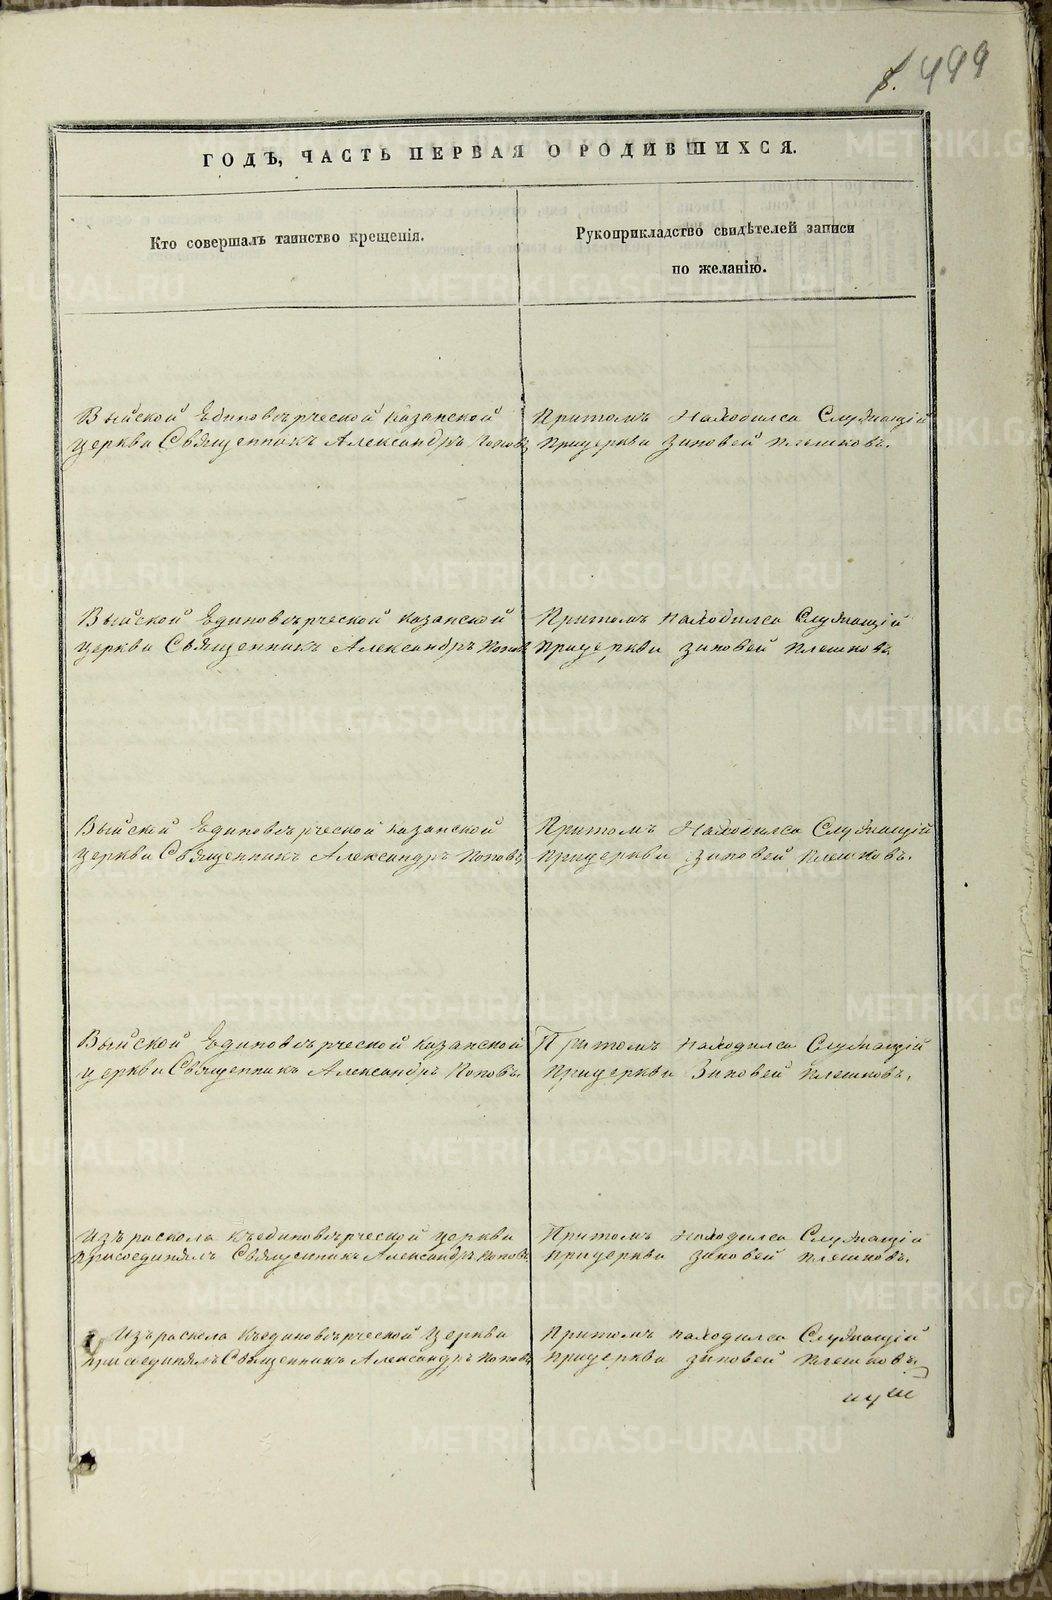 8. 499
ГОДЪ, ЧАСТЬ ПЕРВАЯ О РОДИВШИХСЯ.
Кто совершалъ таинство крещенія.
Рукоприкладство свидѣтелей записи
по желанію.
Выйской Единовѣрческой Казанской
церкви Священникъ Александръ Поповъ
Притомъ находился Служащій
Прицеркви Зиновей Плешковъ.
Выйской Единовѣрческой Казанской
церкви Священникъ Александръ Поповъ
Притомъ находился Служащій
Прицеркви Зиновей Плешковъ
Выйской Единовѣрческой Казанской
церкви Священникъ Александръ Поповъ
Притомъ Находился Служащій
Прицеркви Зиновей Плешковъ.
Выйской Единовѣрческой Казанской
церкви Священникъ Александръ Поповъ.
Притомъ находился Служащій
Прицеркви Зиновей Плешковъ.
Изъ раскола Къединовѣрческой церкви
Присоединялъ Священникъ Александръ Поповъ
Притомъ находился Служащій
Прицеркви Зиновей Плешковъ.
Изъ раскола Къединовѣрческой Церкви
присоединялъ Священникъ Александръ Поповъ
Притомъ находился Служащій
Прицеркви Зиновей Плешковъ
METRIKI.GASO-URAL.RU